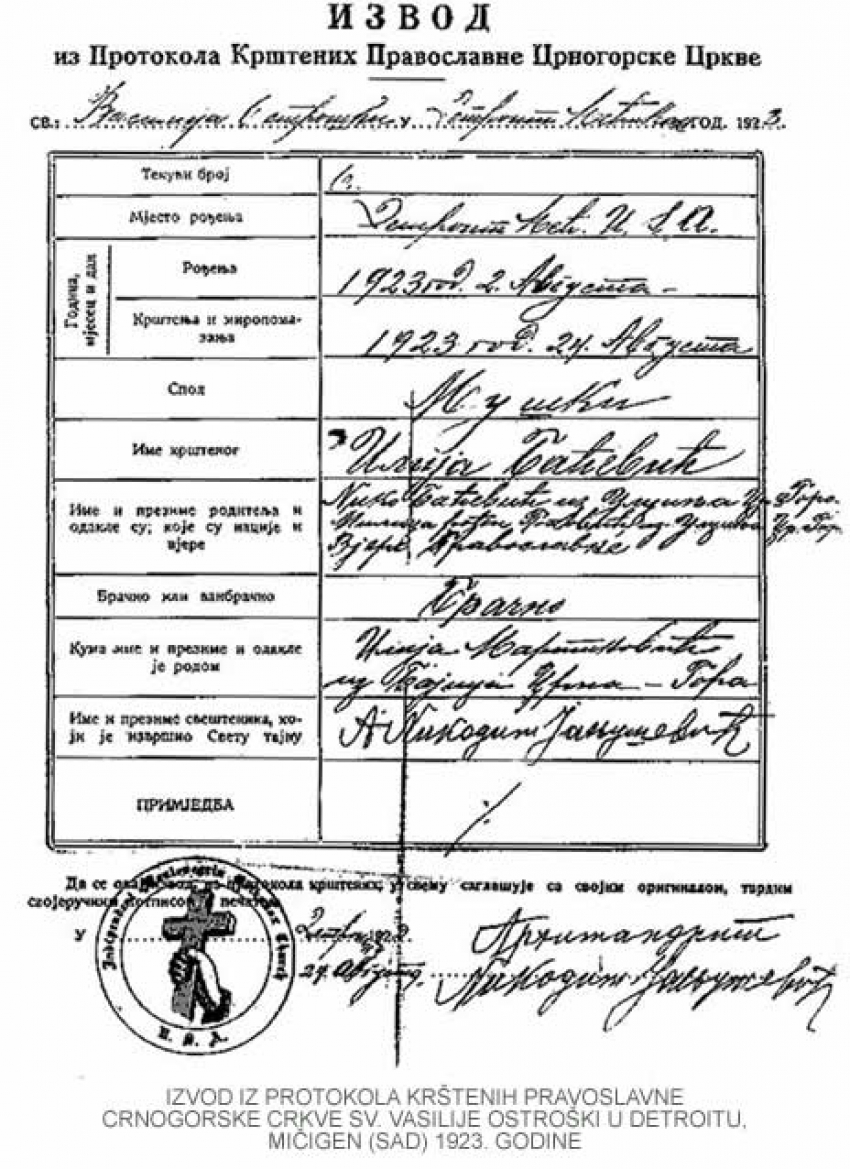 ИЗВОД
из Протокола Крштених Православне Црногорске Цркве
св.: Василија Острошки у Детроит год. 1923.
Текући број
Мјесто рођења
Детроит Мић. U. S. A.
Година, мјесец и дан
Рођења
1923 год. 2. Августа -
Крштења и миропома-
зања
1923 год. 24. Августа
Спол
Мушки
Име крштеног
Илија Баћевић
Име и презиме родитеља и
одакле су; које су нације и
вјере
Нико Баћевић из Улциња Цр. Гора.
Вјере Православне
Брачно или ванбрачно
Брачно
Кума име и презиме и одакле
је родом
Илија Мартиновић
из Бајица Црна - Гора
Име и презиме свештеника, ко-
ји је извршио Свету тајну
А. Никодим Јањушевић
ПРИМЈЕДБА
Да се овај извод из протокола крштених, у свему саглашује са својим оригиналом, тврдим
својеручним потписом и печатом.
У Детроит 1923
24 Августа
Архимандрит
Никодим Јањушевић
Independent Montenegrin Church
U. S. A.
IZVOD IZ PROTOKOLA KRŠTENIH PRAVOSLAVNE
CRNOGORSKE CRKVE SV. VASILIJE OSTROŠKI U DETROITU,
MIČIGEN (SAD) 1923. GODINE